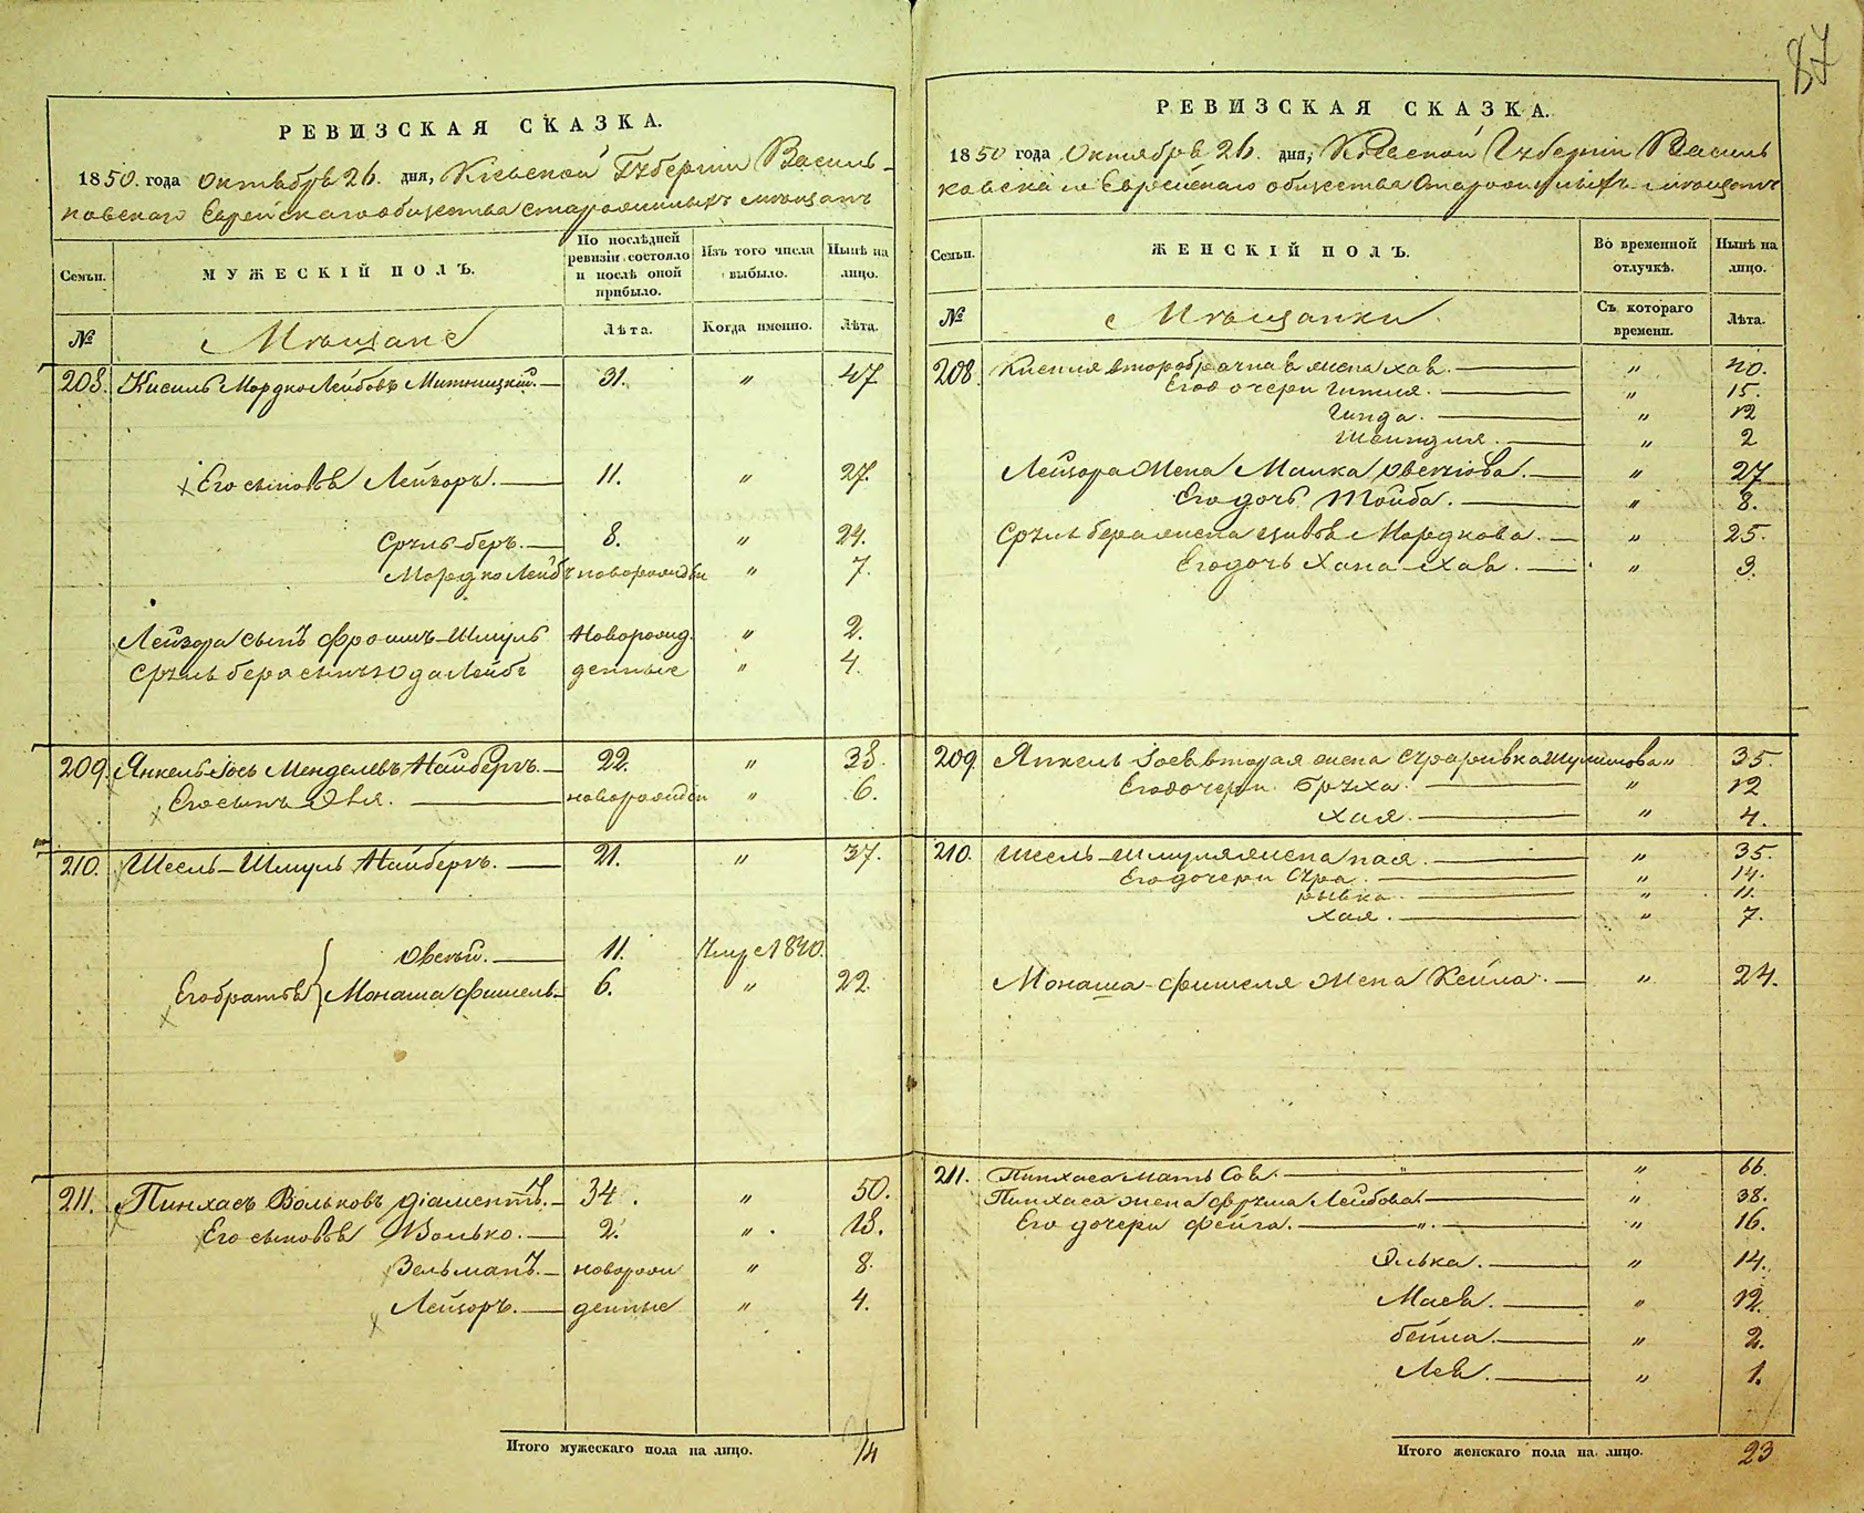 87
РЕВИЗСКАЯ СКАЗКА.
1850. года Октября 26. дня, Кіевской Губерніи Василь-
ковскаго Еврейскаго общества старожилыхъ мѣщанъ
Семьи.
МУЖЕСКІЙ ПОЛЪ.
По послѣдней ревизіи состояло и послѣ оной прибыло.
Изъ того числа выбыло.
Нынѣ на лицо.
№
Мѣщане
Лѣта.
Когда именно.
Лѣта.
208. Кисиль Мордко Лейбовъ Митницкій. 31. " 47
Его сыновья Лейзоръ. 11. " 27.
Сруль-беръ. 8. " 24.
Мордко Лейбъ новорожден " 7.
Лейзора сынъ Фроимъ-Шмуль Новорожд. " 2.
Сруль бера сынъ Юда Лейбъ денные " 4.
209. Янкель-Іось Менделевъ Найбергъ. 22. " 38.
Его сынъ Овсѣй. новорожден " 6.
210. Шесель-Шмуль Найбергъ. 21. " 37.
Овсѣй. 11. Умре 1840.
Его братья Монаша Фишель 6. " 22.
211. Пинхасъ Вольковъ Діаментъ. 34. " 50.
Его сыновья Волько. 2. " 18.
Зельманъ. новорож " 8.
Лейзоръ. денные " 4.
Итого мужескаго пола на лицо. 14
РЕВИЗСКАЯ СКАЗКА.
1850 года Октября 26. дня, Кіевской Губерніи Василь
ковскаго Еврейскаго общества Старожилыхъ мѣщанъ
Семьи.
ЖЕНСКІЙ ПОЛЪ.
Во временной отлучкѣ.
Нынѣ на лицо.
№
Мѣщанки
Съ котораго времени.
Лѣта.
208 Кисиля второбрачная жена Хая. " 40.
Его дочери Гитля. " 15.
Гинда. " 12
Шейндля. " 2
Лейзора Жена Малка . " 27
Его дочь Тойба. " 8.
Сруль бера жена Цивья Мордкова. " 25.
Его дочь Хана-Хая. " 3.
209. Янкель Іося вторая жена Сура ривка " 35.
Его дочери Бруха. " 12
Хая. " 4.
210. Шесель-Шмуля жена пая. " 35.
Его дочери Сура. " 14.
рывка. " 11.
хая. " 7.
Монаша-Фишеля Жена Кейла. " 24.
211. Пинхаса мать Соя. " 66.
Пинхаса жена Фрума Лейбова. " 38.
Его дочери Фейга. " 16.
Элька. " 14.
Мася. " 12.
бейла. " 2.
Лея. " 1.
Итого женскаго пола на лицо. 23